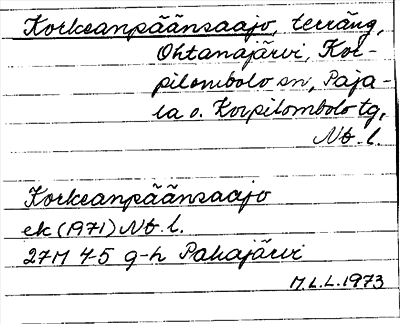 Korkeanpäänsaajo, terräng,
Ohtanajärvi, Kor-
pilombolo sn, Paja-
la o. Korpilombolo tg,
Nb. l.
Korkeanpäänsaajo
ek (1971) Nb. l.
27M 4-5 g-h Pahajärvi
M.L.L. 1973